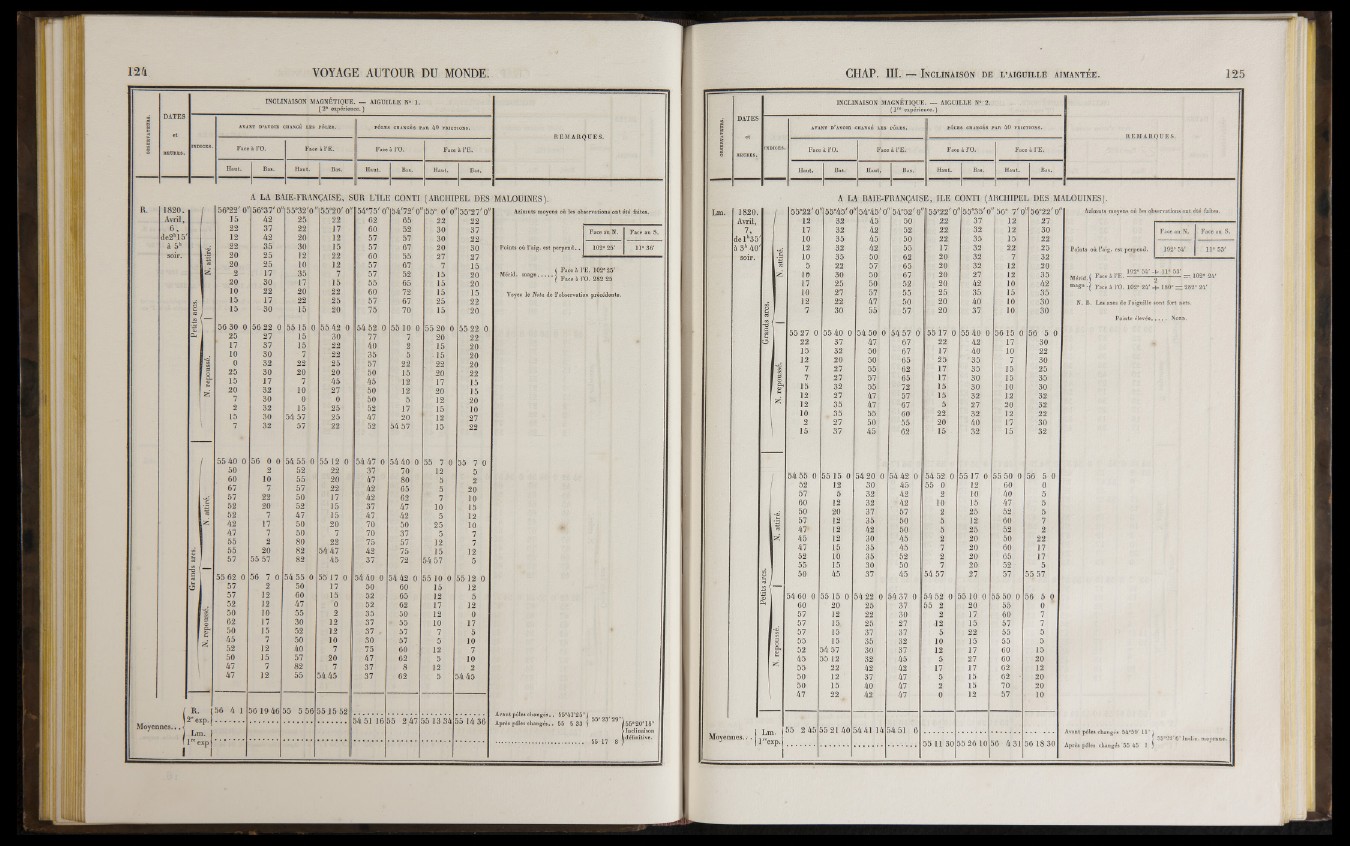 124 VOYAGE AUTOUR DU MONDE.
INCLINAISON MAGNÉTIQUE. — AIGUILLE N° 1.
(2e expérience.)
OBSERVATEURS.
DATES
et
HEURES.
INDICES.
AVANT D'AVOIR CHANGÉ LES PÔLES.
PÔLES CHANGÉS PAR 40 FRICTIONS.
REMARQUES.
Face à l'O. Face à l'E. Face à l'O. Face à l'E.
Haut. Bas. Haut. Bas. Haut. Bas. Haut. Bas.
A LA BAIE-FRANÇAISE, SUR L'ILE CONTI (ARCHIPEL DES MALOUINES).
R.
1820.
Avril,
6,
de 2h 15'
à 5h
soir.
Petits arcs.
N. attiré.
56°22' 0" 56°37' 0" 55°32' 0" 55°20' 0" 54°75' 0" 54°72' 0" 55° 0' 0" 55°27' 0"
15 42 25 22 62 65 22 22
22 37 22 17 60 52 30 37
12 42 20 12 57 57 30 22
22 35 30 15 57 67 20 30
20 25 12 22 60 55 27 27
20 25 10 12 57 67 7 15
2 17 35 7 57 52 15 20
20 30 17 15 55 65 15 20
10 22 20 22 60 72 15 15
15 17 22 25 57 67 25 22
15 30 15 20 75 70 15 20
N. repoussé.
56 30 0 56 22 0 55 15 0 55 42 0 54 52 0 55 10 0 55 20 0 55 22 0
25 27 15 30 77 7 20 22
17 37 15 22 40 2 15 20
10 30 7 22 35 5 15 20
0 32 22 25 57 22 22 20
25 30 20 20 50 15 20 22
15 17 7 45 45 12 17 15
20 32 10 27 50 12 20 15
7 30 0 0 50 5 12 20
2 32 15 25 52 17 15 10
15 30 54 57 25 47 20 12 27
7 32 57 22 52 54 57 15 22
Grands arcs.
N. attiré.
55 40 0 56 0 0 54 55 0 55 12 0 54 47 0 54 40 0 55 7 0 55 7 0
50 2 52 22 37 70 12 5
60 10 55 20 47 80 5 2
67 7 57 22 42 65 5 20
57 22 50 17 42 62 7 10
52 20 52 15 37 47 10 15
52 7 47 15 47 42 5 12
42 17 50 20 70 50 25 10
47 7 50 7 70 37 5 7
55 2 80 22 75 57 12 7
55 20 82 54 47 42 75 15 12
57 55 57 82 45 37 72 54 57 5
N. repoussé.
55 62 0 56 7 0 54 55 0 55 17 0 54 40 0 54 42 0 55 10 0 55 12 0
57 2 50 17 50 60 15 12
57 12 60 15 52 65 12 5
52 12 47 0 52 62 17 12
50 10 55 2 35 50 12 0
62 17 30 12 37 55 10 17
50 15 52 12 37 57 7 5
45 7 50 10 50 57 5 10
52 12 40 7 75 60 12 7
50 15 57 20 47 62 5 10
47 7 82 7 37 8 12 2
47 12 55 54 45 37 62 5 54 45
Moyennes...
R. 2e exp. 56 4 1 56 19 46 55 5 56 55 15 52
54 51 16 55 2 47 55 13 34 55 14 36
Lm. 1re exp.
Azimuts moyens où les observations ont été faites.
Face au N. Face au S.
Points où l'aig. est perpend.. 102° 25' 11° 36'
Mérid. magn..... Face à l'E. 102° 25'
Face à l'O. 282 25
Voyez le Nota de l'observation précédente.
Avant pôles changés.. 55°41'25"
Après pôles changés... 55 5 33
55° 23' 29"
55 17 8
55°20'18" Inclinaison définitive.
CHAP. III. — INCLINAISON DE L'AIGUILLE AIMANTÉE. 125
INCLINAISON MAGNÉTIQUE. — AIGUILLE N° 2.
(1re expérience.)
OBSERVATEURS.
DATES
et
HEURES.
INDICES.
AVANT D'AVOIR CHANGÉ LES PÔLES.
PÔLES CHANGÉS PAR 40 FRICTIONS.
REMARQUES.
Face à l'O. Face à l'E. Face à l'O. Face à l'E.
Haut. Bas. Haut. Bas. Haut. Bas. Haut. Bas.
A LA BAIE-FRANÇAISE, ILE CONTI (ARCHIPEL DES MALOUINES).
Lm.
1820.
Avril,
7,
de 1h35'
à 3h 40'
soir.
Grands arcs.
N. attiré.
55°22' 0" 55°45' 0" 54°45' 0" 54°52' 0" 55°22' 0" 55°35' 0" 56° 7' 0" 56°22' 0"
12 32 45 50 22 37 12 27
17 32 42 52 22 32 12 30
10 35 45 50 22 35 15 22
12 32 42 55 17 32 22 25
10 35 50 62 20 32 7 32
5 22 57 65 20 32 12 20
10 30 50 67 20 27 12 35
17 25 50 52 20 42 10 42
10 27 57 55 25 35 15 35
12 22 47 50 20 40 10 30
7 30 55 57 20 37 10 30
N. repoussé.
55 27 0 55 40 0 54 50 0 54 57 0 55 17 0 55 40 0 56 15 0 56 5 0
22 37 47 67 22 42 17 30
15 32 50 67 17 40 10 22
12 20 50 65 25 35 7 30
7 27 55 62 17 35 15 25
7 27 57 65 17 30 15 35
15 32 55 72 15 30 10 30
12 27 47 57 15 32 12 32
12 35 47 67 5 27 20 32
10 35 55 60 22 32 12 22
2 27 50 55 20 40 17 30
15 37 45 62 15 32 15 32
Petits arcs.
N. attiré.
54 55 0 55 15 0 54 20 0 54 42 0 54 52 0 55 17 0 55 50 0 56 5 0
52 12 30 45 55 0 12 60 0
57 5 32 42 2 10 40 5
60 12 32 42 10 15 47 5
50 20 37 57 2 25 52 5
57 12 35 50 5 12 60 7
47 12 42 50 5 25 52 2
45 12 30 45 2 20 50 22
47 15 35 45 7 20 60 17
52 10 35 52 2 20 65 17
55 15 30 50 7 20 52 5
50 45 37 45 54 57 27 57 55 57
N. repoussé.
54 60 0 55 15 0 54 22 0 54 37 0 54 52 0 55 10 0 55 50 0 56 5 0
60 20 25 37 55 2 20 55 0
57 12 22 30 2 17 60 7
57 15 25 27 12 15 57 7
57 15 37 37 5 22 55 5
55 15 35 32 10 15 55 5
52 54 57 30 37 12 17 60 15
45 55 12 32 45 5 27 60 20
55 22 42 42 17 17 62 12
50 12 37 47 5 15 62 20
50 15 40 47 2 15 70 20
47 22 42 47 0 12 57 10
Moyennes...
Lm. 1re exp. 55 2 45 55 21 40 54 41 14 54 51 6
55 11 30 55 26 10 56 4 31 56 18 30
Azimuts moyens où les observations ont été faites.
Face au N. Face au S.
Points où l'aig. est perpend. 192° 54' 11° 55'
Mérid. magn. Face à l'E. 192° 54' + 11° 55' / 2 = 102° 24'
Face à l'O. 102° 24' + 180° = 282° 24'
N. B. Les axes de l'aiguille sont fort nets.
Pointe élevée...... Nord.
Avant pôles changés 54°59' 11"
Après pôles changés 55 45 1